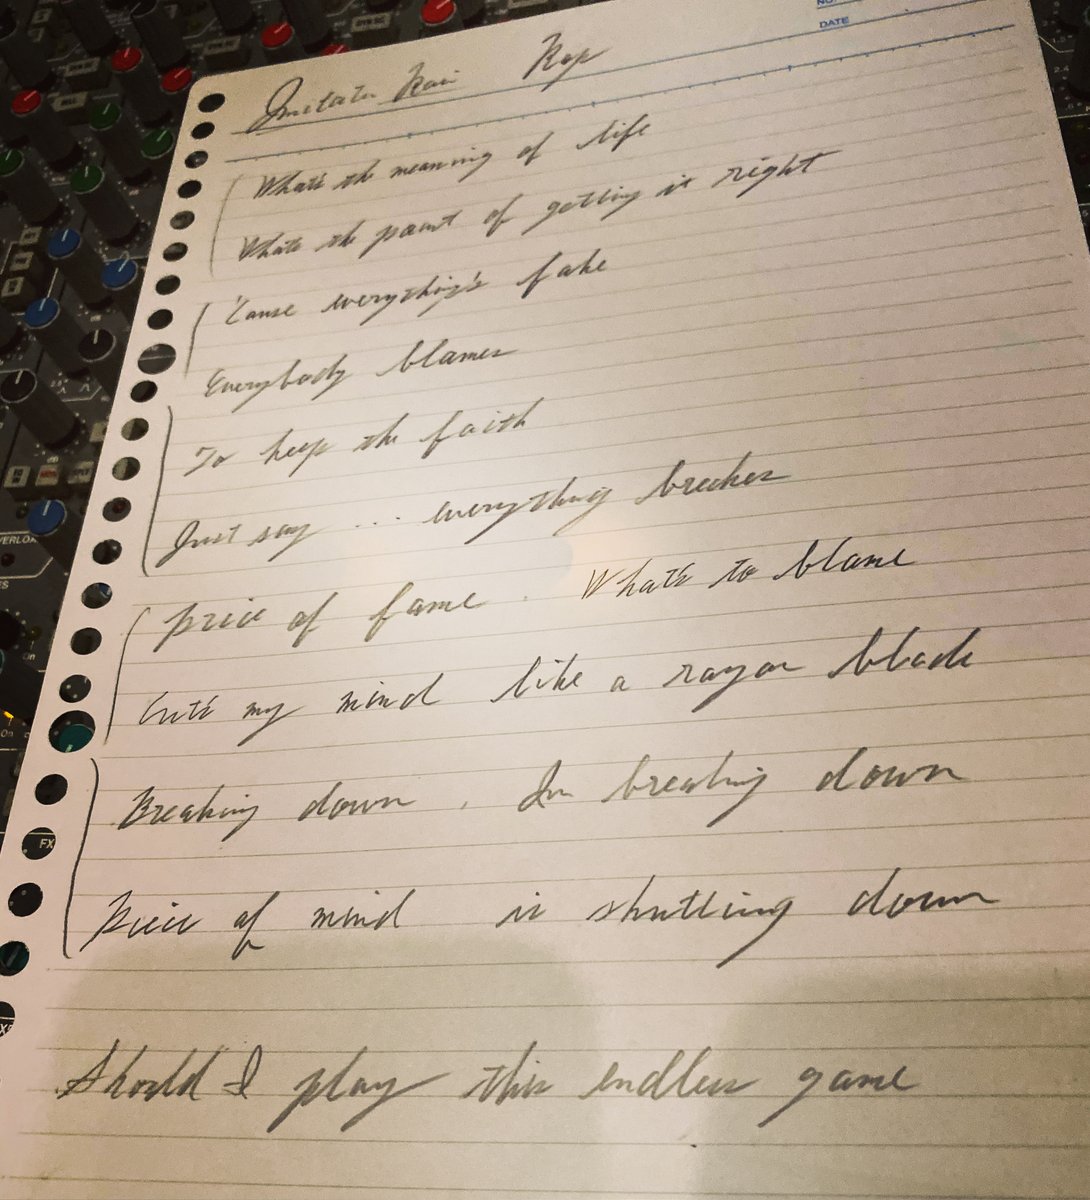 NO.
DATE
Rap
What's the meaning of life
What's the point of getting it right
'Cause everything's fake
Everybody blames
To keep the faith
Just say ... everything breakes
Price of fame. What's to blame
Cut's my mind like a razor blade
Breaking down, I'm breaking down
Piece of mind is shutting down
Should I play this endless game
FX